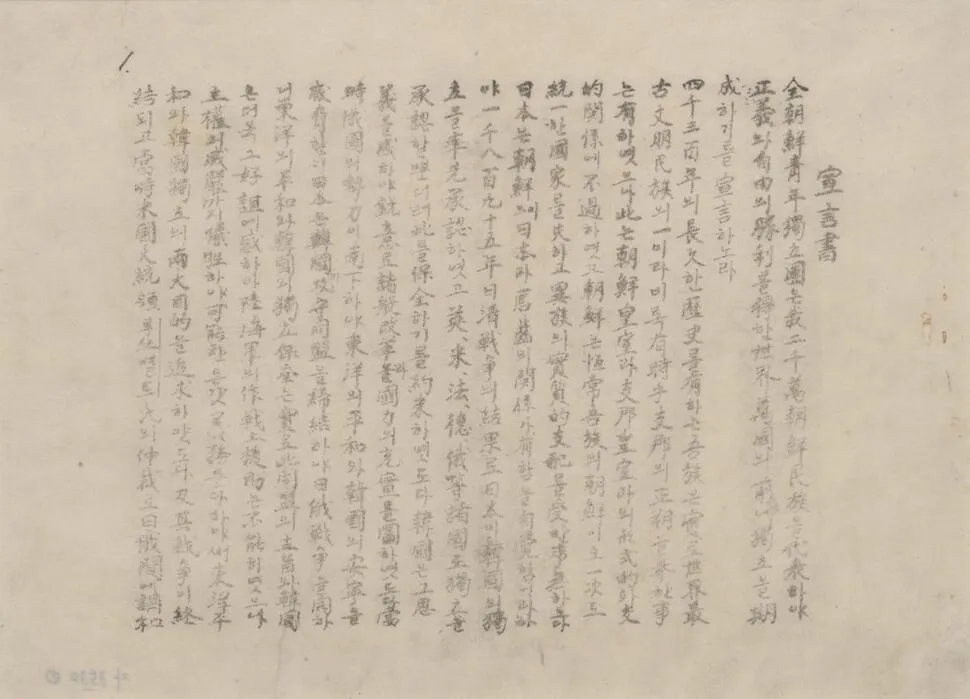 宣言書
全朝鮮青年獨立團은我二千萬朝鮮民族을代表하야
正義와自由의勝利를得한世界萬國의前에獨立을期
成하기를宣言하노라
四千三百年의長久한歷史를有하는吾族은實로世界最
古文明民族의一이라비록有時乎支那의正朔을奉한事
는有하엿으나此는朝鮮皇室과支那皇室과의形式的外交
的關係에不過하엿고朝鮮은恒常吾族의朝鮮이오一次도
統一한國家를失하고異族의實質的支配를受한事無하도다
日本은朝鮮이日本과唇齒의關係가有함을自覺함이라하
야一千八百九十五年日淸戰爭의結果로日本이韓國의獨
立을率先承認하엿고英、米、法、德、俄等諸國도獨立을
承認할뿐더러此를保全하기를約束하엿도다韓國은그恩
義를感하야銳意로諸般改革과國力의充實을圖하엿도다當
時俄國의勢力이南下하야東洋의平和와韓國의安寧을
威脅할새日本은韓國과攻守同盟을締結하야日俄戰爭을開하
니東洋의平和와韓國의獨立保全은實로此同盟의主旨와韓國
은더욱그好誼에感하야陸海軍의作戰上援助는不能하엿으나
主權의威嚴까지犧牲하야可能한온갖義務를다하야써東洋平
和와韓國獨立의兩大目的을追求하얏도다及其戰爭이終
結되고當時米國大統領루쓰벨트氏의仲裁로日俄間에講和
1.